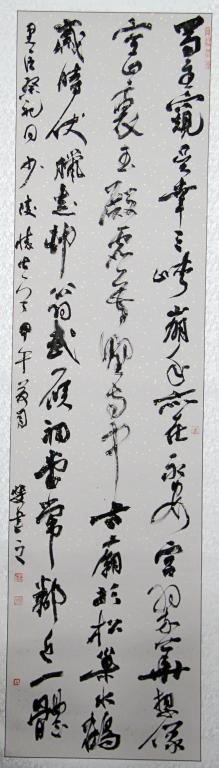 蜀主窺吳幸三峽崩年亦在永安宮翠華想像
空山裏玉殿虛無野寺中古廟杉松巢水鶴
歲時伏臘走村翁武侯祠堂常鄰近一體
君臣祭祀同少陵懷古甲午書之